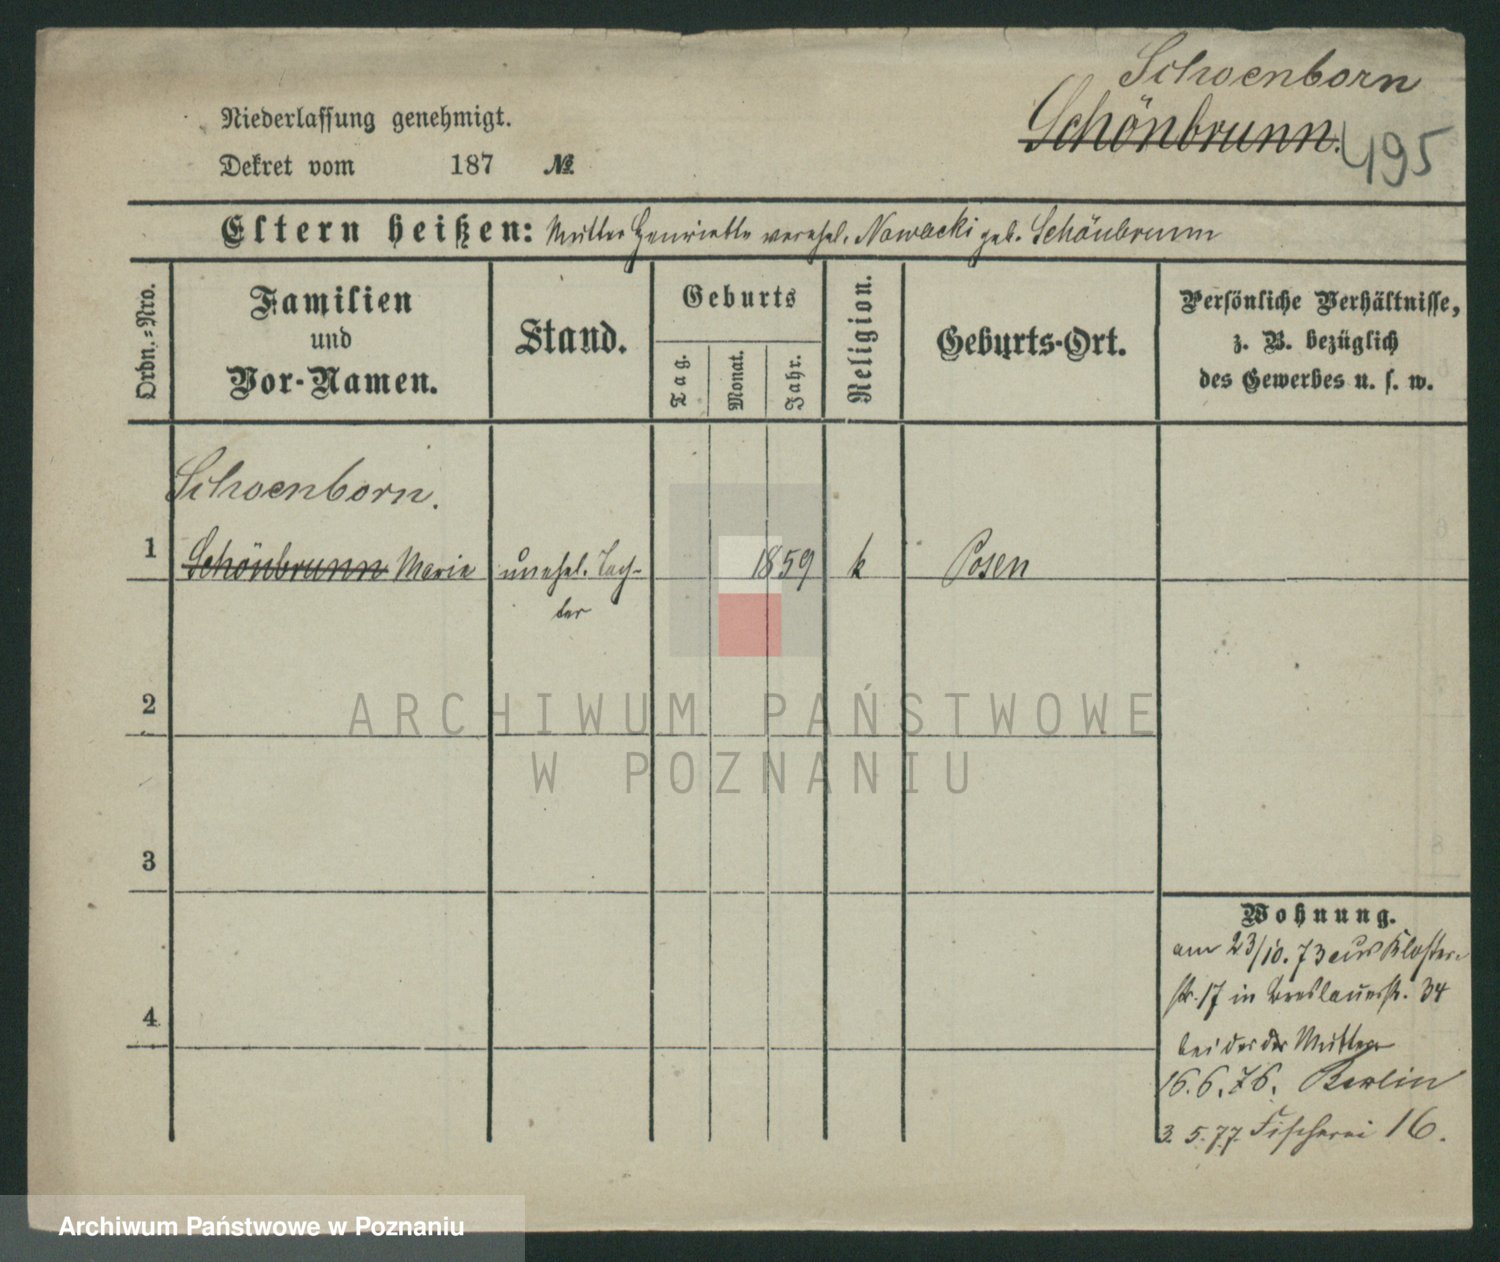 Schoenborn
Schönbrunn. 495
Niederlassung genehmigt.
Dekret vom 187 №
Eltern heißen: Mutter Henriette verehel. Nowacki geb. Schönbrunn
Ordn.-Nro.
Familien
und
Vor-Namen.
Stand.
Geburts
Tag.
Monat.
Jahr.
Religion.
Geburts-Ort.
Persönliche Verhältnisse,
z. B. bezüglich
des Gewerbes u. s. w.
Schoenborn.
1 Schönbrunn Marie unehel. Toch- 1859 k Posen
ter
2
3
4
Wohnung.
am 23/10. 73 aus Kloster-
str. 17 in Breslauerstr. 34
bei der der Mutter
16.6.76. Berlin
3. 5. 77. Fischerei 16.
ARCHIWUM PAŃSTWOWE
W POZNANIU
Archiwum Państwowe w Poznaniu